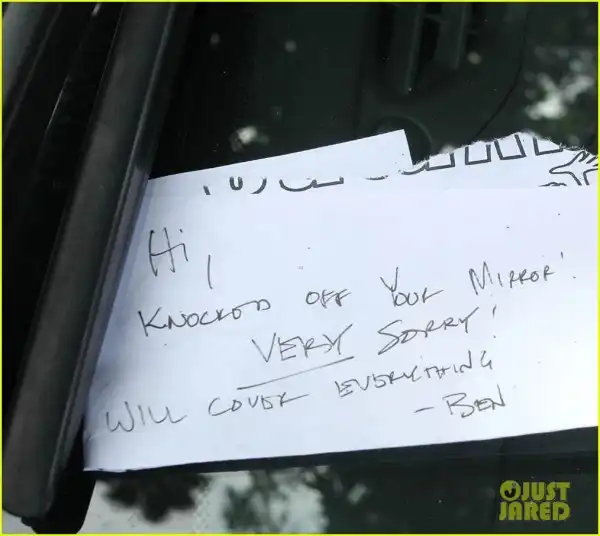 Hi,
KNOCKED OFF YOUR MIRROR!
VERY SORRY!
WILL COVER EVERYTHING
- BEN
JUST
JARED